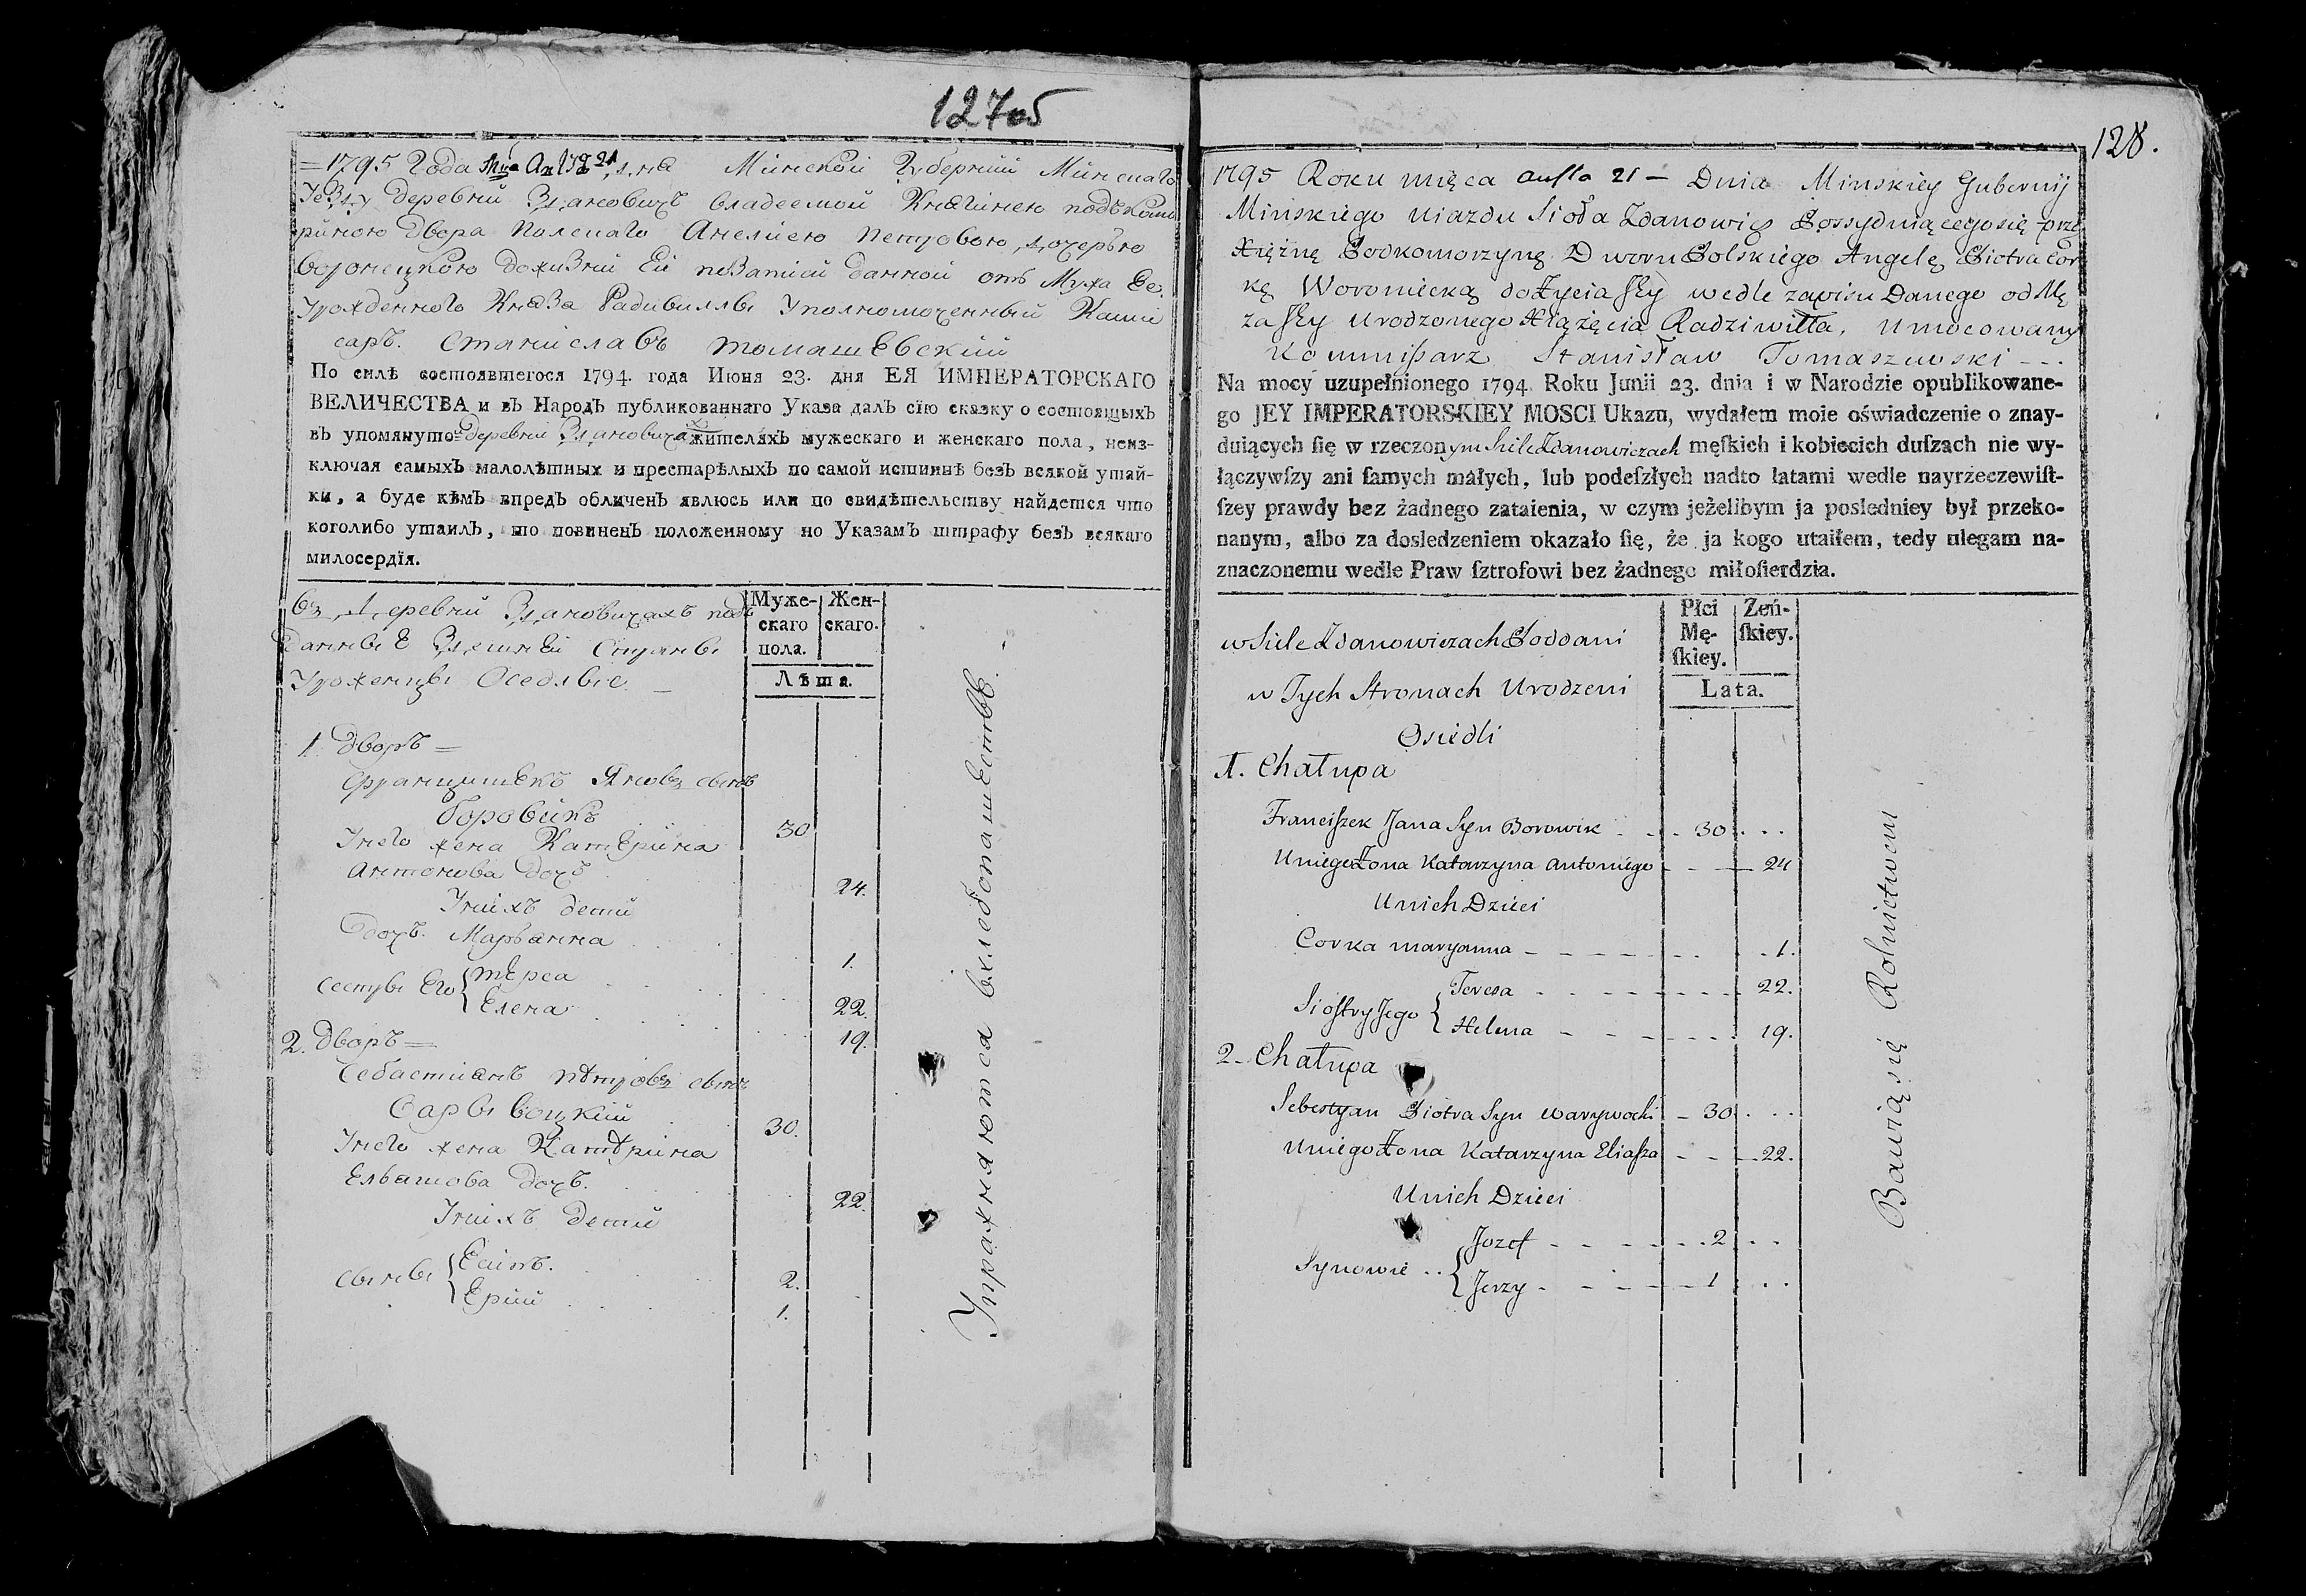 127об
1795 Года Мца Ап 21 дня Минской Губернии Минскаго
Уезду деревни Здановичъ владеемой Княгинею подъкомо
риною Двора Полскаго Анелиею Петровою дочерью
Воронецкою дожизни Ей данной отъ Мужа Ее
Урожденного Князя Радивиллы Уполномоченный Коми
саръ. Станиславъ Томашевский
По силѣ состоявшегося 1794. года Июня 23. дня ЕЯ ИМПЕРАТОРСКАГО
ВЕЛИЧЕСТВА и въ Народъ публикованнаго Указа далъ сїю сказку о состоящыхъ
въ упомянуто- деревни Здановичахъ жителяхъ мужескаго и женскаго пола, неиз-
ключая самыхъ малолѣтныхъ и престарѣлыхъ по самой истиннѣ безъ всякой утай-
ки, а буде кѣмъ впредъ обличенъ явлюсь или по свидѣтельству найдется что
коголибо утаилъ, то повиненъ положенному по Указамъ штрафу безъ всякаго
милосердїя.
въ Деревни Здановичахъ под
данные Здешней Страны
Уроженцы Оседлые
Муже-
скаго
пола.
Жен-
скаго.
Лѣта.
1. Дворъ
Францишекъ Яновъ сынъ
Боровикъ 30
Унего жена Катерина
Антонова дочъ 24.
Унихъ дети
Дочъ. Марьянна 1.
Сестры Его Тереса 22.
Елена 19.
2. Дворъ
Себастианъ Петровъ сынъ
Сарывоцкий 30.
Унего жена Катерина
Ельяшова дочъ. 22.
Унихъ дети
Сыны Есипъ. 2.
Ерий 1.
Упражняются вхлебопашестве.
128.
1795 Roku mięca 21 – Dnia Minskiey Gubernij
Minskiego Uiazdu Sioła Zdanowicz Possydniącegosię prze
Xiężnę Podkomorzynę Dworu Polskiego Angelę Piotra Cór
kę Woroniecką doŻycia Jey wedle zapisu Danego od Mę
za Jey Urodzonego Xiążęcia Radziwiłła, Umocowany
Kommiſsarz Stanisław Tomaszewski
Na mocy uzupełnionego 1794 Roku Junii 23. dnia i w Narodzie opublikowane-
go JEY IMPERATORSKIEY MOSCI Ukazu, wydałem moie oświadczenie o znay-
duiących ſię w rzeczonym Siele Zdanowiczach męſkich i kobiecich duſzach nie wy-
łączywſzy ani ſamych małych, lub podeſzłych nadto latami wedle nayrzeczewiſt-
ſzey prawdy bez żadnego zataienia, w czym jeżelibym ja posledniey był przeko-
nanym, albo za dosledzeniem okazało ſię, że ja kogo utaiłem, tedy ulegam na-
znaczonemu wedle Praw ſztrofowi bez żadnego miłoſierdzia.
w Siele Zdanowiczach Poddani
w Tych Stronach Urodzeni
Osiedli
Płci
Mę-
ſkiey.
Zeń-
ſkiey.
Lata.
1. Chałupa
Franciſzek Jana Syn Borowik 30
Uniego Żona Katarzyna Antoniego 24
Unich Dzieci
Corka maryanna 1.
Sioſtry Jego Teresa 22.
Helena 19.
2. Chałupa
Sebestyan Piotra Syn Warywocki 30
Uniego Żona Katarzyna Eliaſza 22.
Unich Dzieci
Synowie Jozef 2
Jerzy 1
Bawią się Rolnictwem